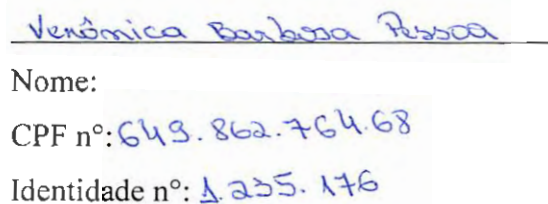 Verônica Barbosa Pessoa
Nome:
CPF nº: 649.862.764.68
Identidade nº: 1.235.176